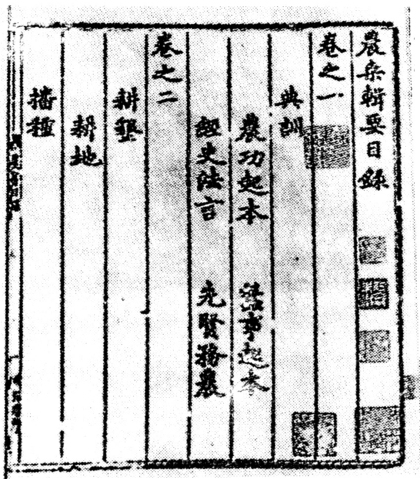 農桒輯要目錄
卷之一
典訓
農功起本 蠶事起本
經史法言 先賢務農
卷之二
耕墾
耕地
播種